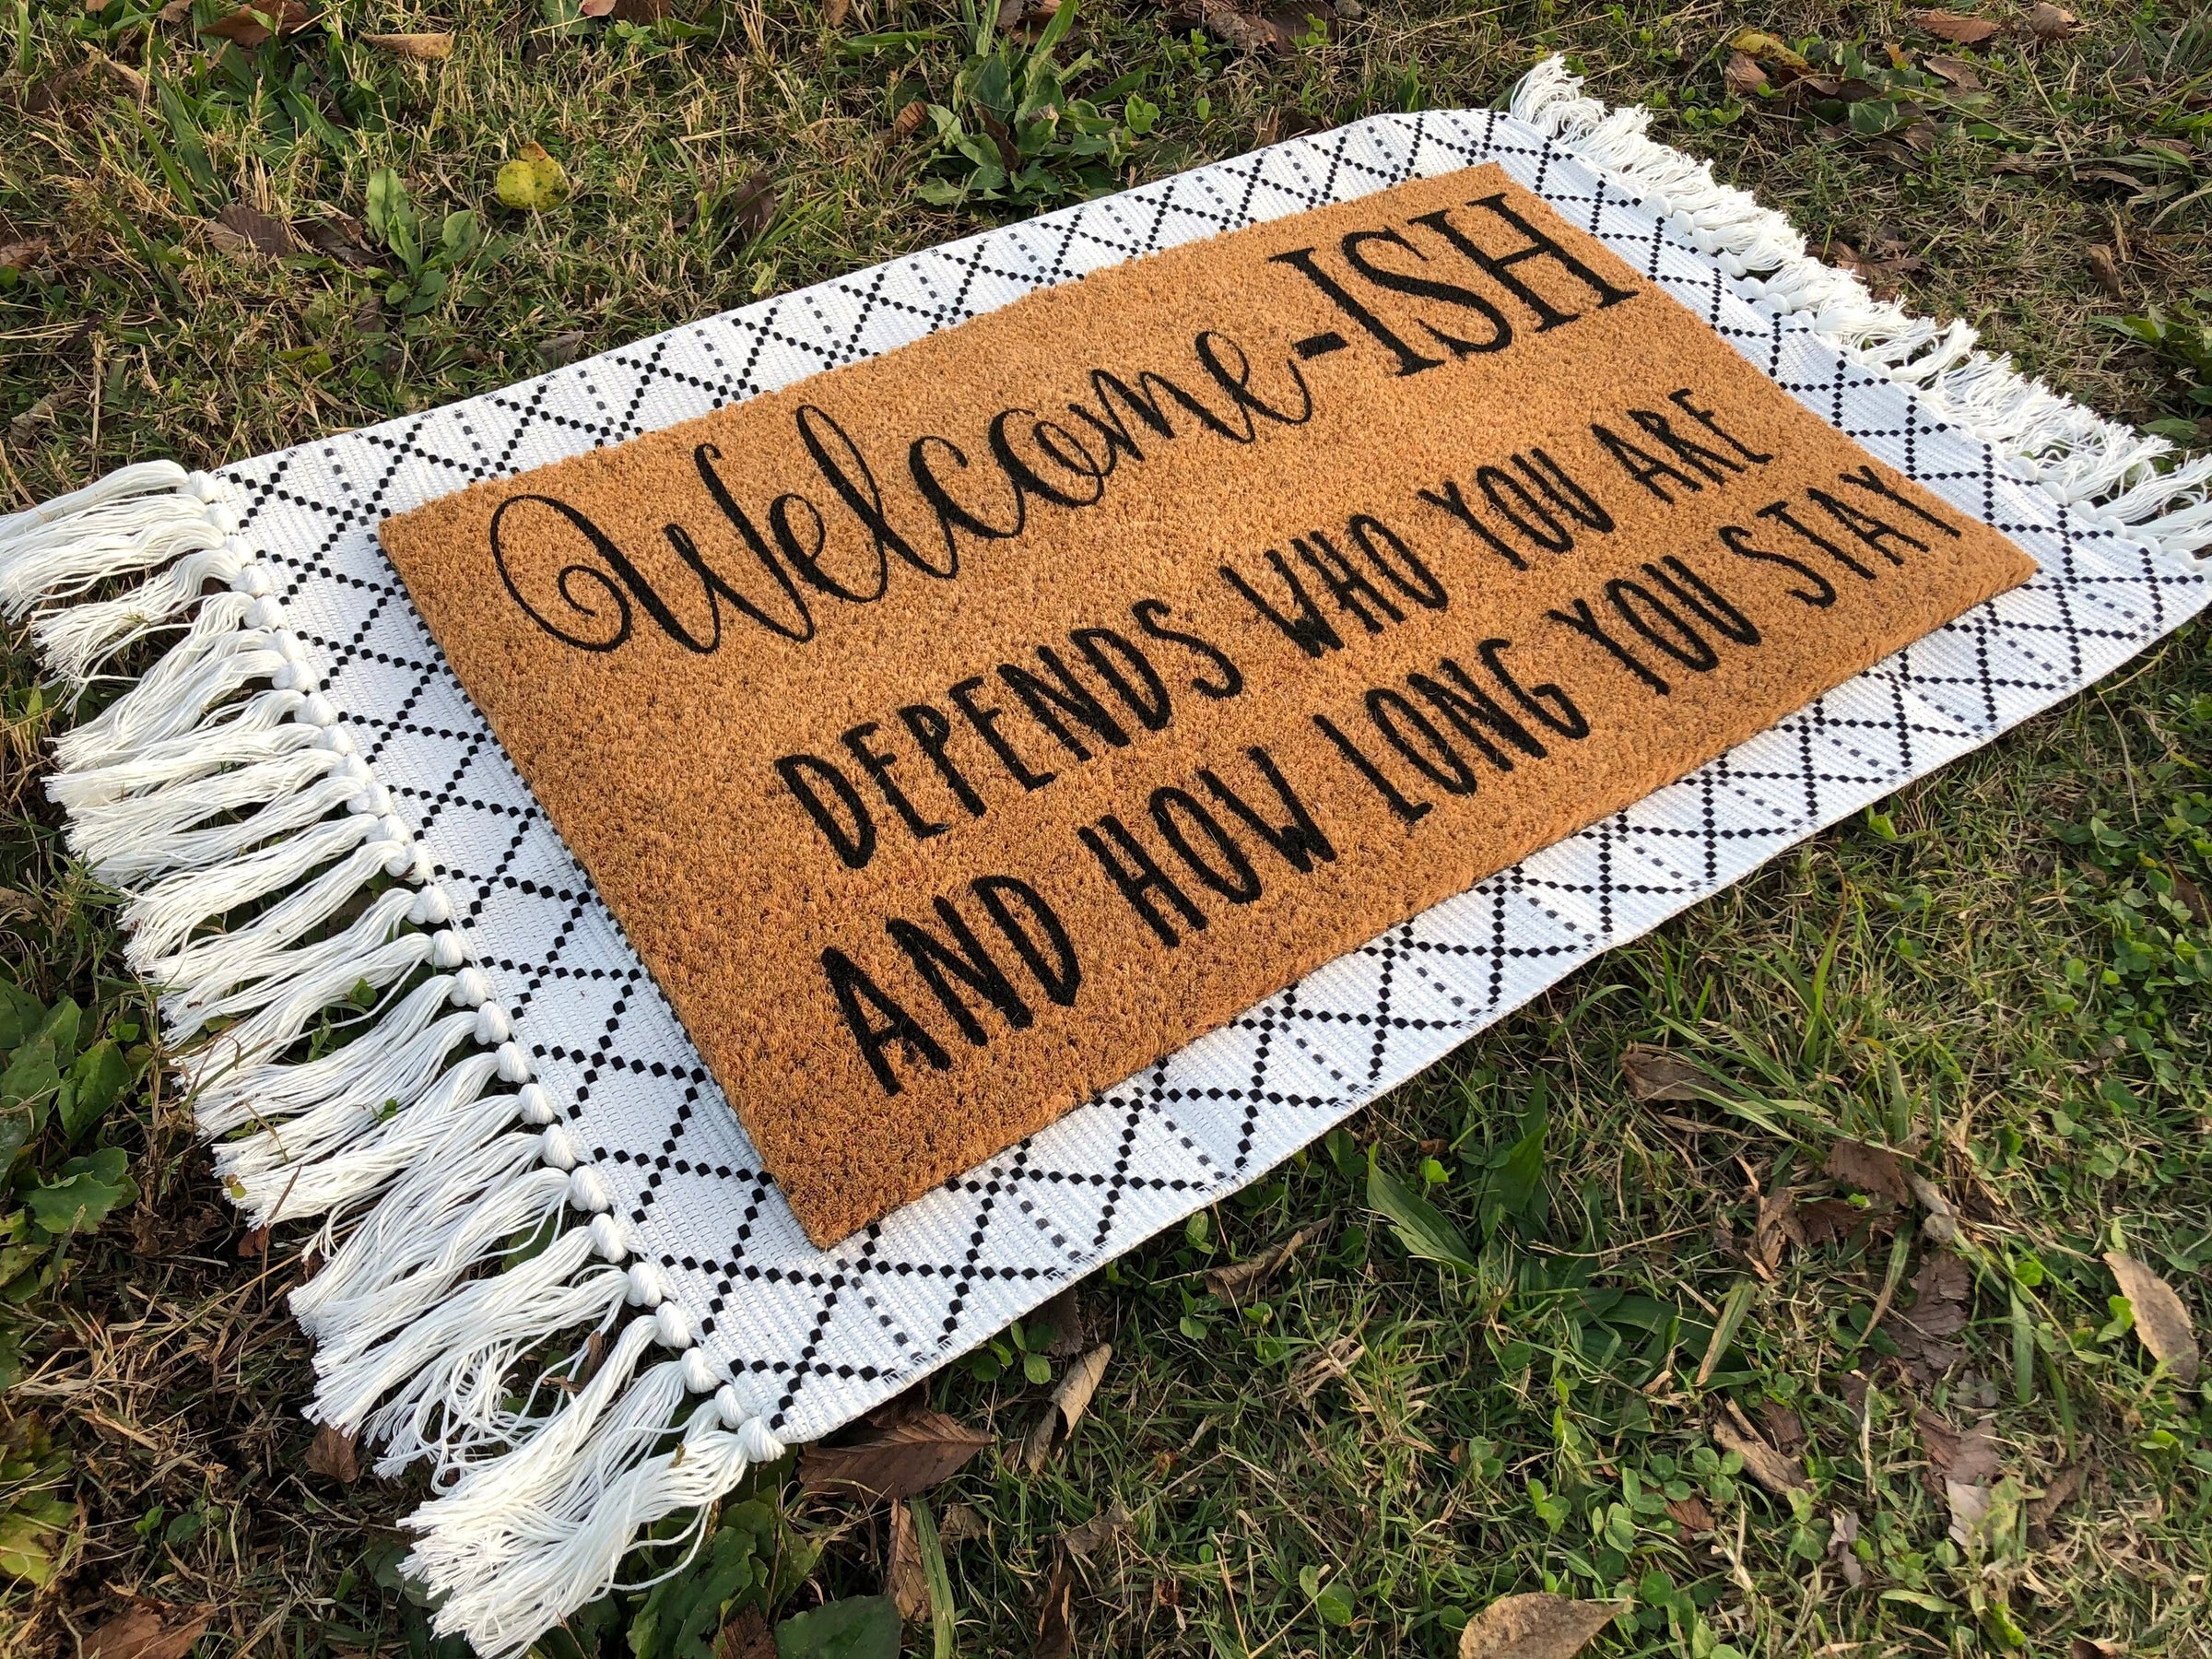 Welcome-ISH
DEPENDS WHO YOU ARE
AND HOW LONG YOU STAY